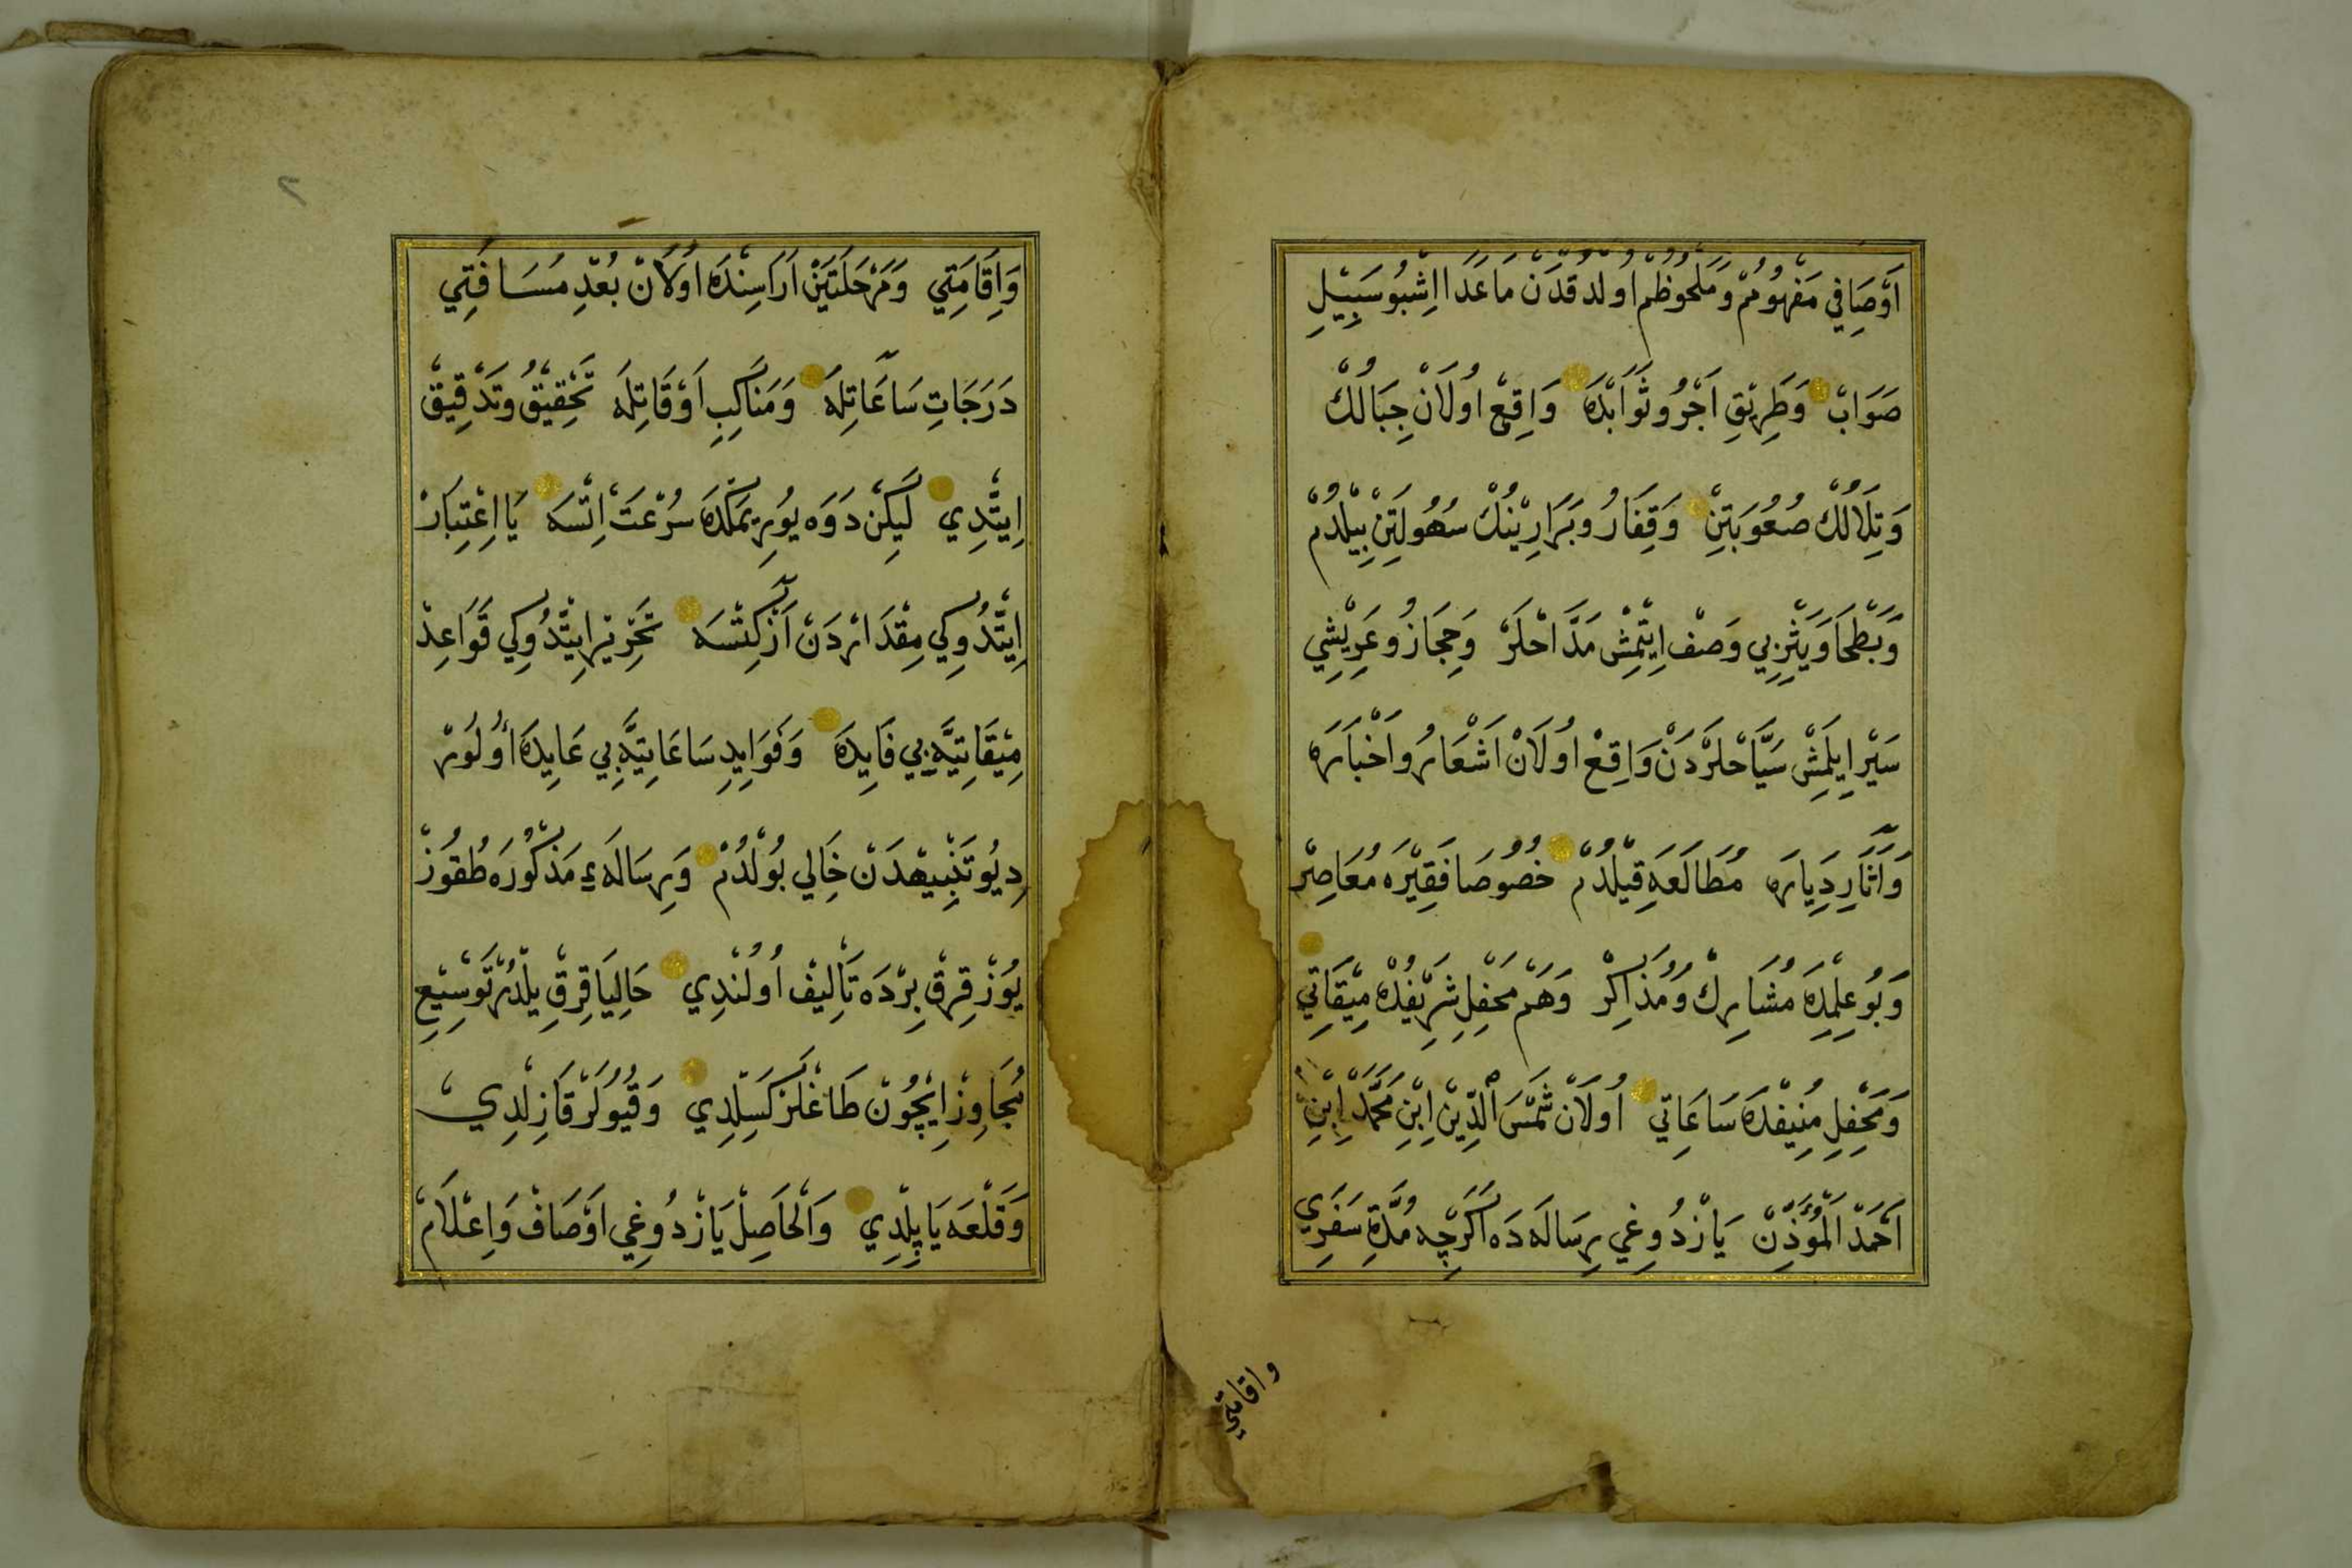 اَوْصَافِي مَفْهُومُمْ وَمَلْحُوظُمْ اولدقدَنْ مَاعَدَا اِشْبُو سَبِيلِ
صَوَابْ وَطَرِيقِ اَجْرُ وثَوَابْدَه وَاقِعْ اُولَانْ جِبَالُكْ
وَتِلَالُكْ صُعُوبَتِنْ وَقِفَارُ وبَرَارِينُكْ سُهُولَتِنْ بِيلْدُمْ
وَبَطْحَا وَيَثْرِبِي وَصْف اِيتْمِشْ مَدَّاحْلَرْ وَحِجَازُ وعَرِيشِي
سَيْر ايلَمِشْ سَيَّاحْلَرْدَنْ وَاقِعْ اُولَانْ اَشْعَارُ واَخْبَارَه
وَآثَارِ دِيَارَه مُطَالَعَه قِيلْدُمْ خُصُوصَا فَقِيرَه مُعَاصِرْ
وَبُو عِلْمِدَه مُشَارِكْ وَمُذَاكِرْ وَهَمْ مَحْفِلِ شَرِيفُدَه مِيقَاتِي
وَمَحْفِلِ مُنِيفْدَه سَاعَاتِي اُولَانْ شَمْسَ الْدِّينْ اِبْنِ مُحَمَّدْ اِبْنِ
اَحْمَدْ الْمُؤَذِّنْ يَازْدُوغِي رِسَالَه دَه اَكَرْچِه مُدَّةِ سَفَرِي
واقامتي
٢
وَاِقَامَتِي وَمَرْحَلَتَيْنْ اَرَاسِنْدَه اُولَانْ بُعْدِ مُسَافَتِي
دَرَجَاتِ سَاعَاتِلَه وَمَنَاكِبِ اَوْقَاتِلَه تَحْقِيقُ وتَدْقِيقْ
اِيتْدِي لَيكِنْ دَوَه يُورِيمَكْدَه سُرْعَتْ اِتْسَه يَا اِعْتِبَارْ
اِيتْدُوكِي مِقْدَارْدَنْ آزْ كِتْسَه تَحْرِيرْ اِيتْدُوكِي قَوَاعِدْ
مِيقَاتِيَّه بِي فَايِدَه وَفَوَايِدِ سَاعَاتِيَّه بِي عَايِدَه اُولُورْ
دِيُو تَنْبِيهْدَنْ خَالِي بُولْدُمْ وَرِسَالَۀ مَذْكُورَه طُقُوزْ
يُوزْ قِرقْ بِرْدَه تَأْلِيفْ اُولُنْدِي حَالِيَا قِرقْ يِلْدُرْ تَوْسِيعِ
تَجَاوِزْ اِيچُونْ طَاغْلَرْ كَسِلْدِي وَقُيُولَرْ قَازِلْدِي
وَقَلْعَه يَاپِلْدِي وَالْحَاصِلْ يَازْدُوغِي اَوْصَافْ وَاِعْلَامْ